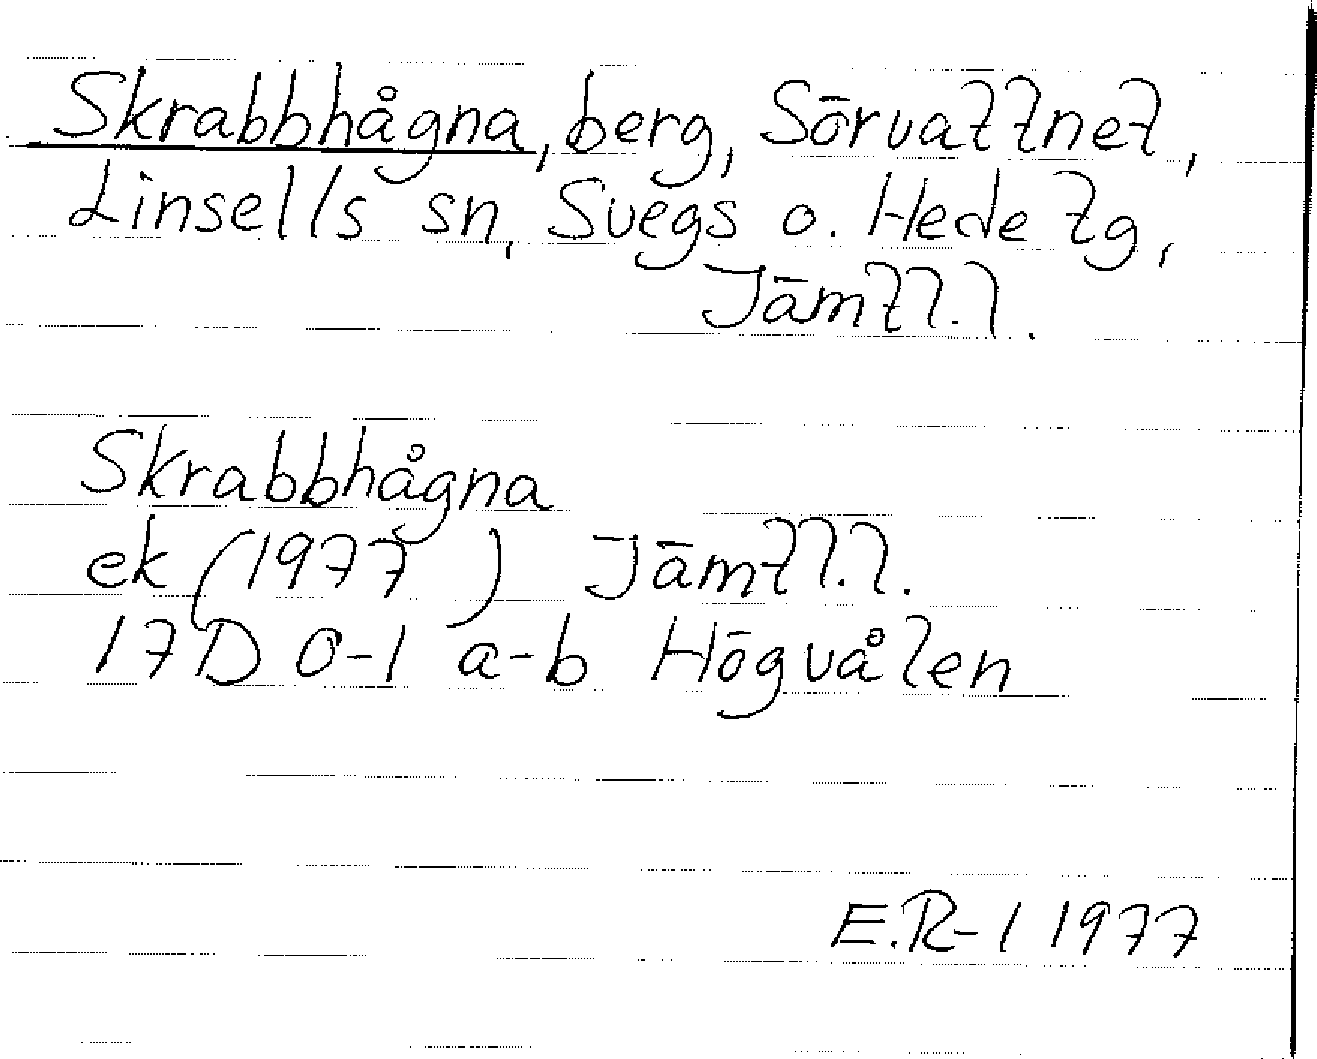 Skrabbhågna, berg, Sörvattnet,
Linsells sn, Svegs o. Hede tg,
Jämtl.l.
Skrabbhågna
ek (1977) Jämtl.l.
17D 0-1 a-b Högvålen
E.R-l 1977